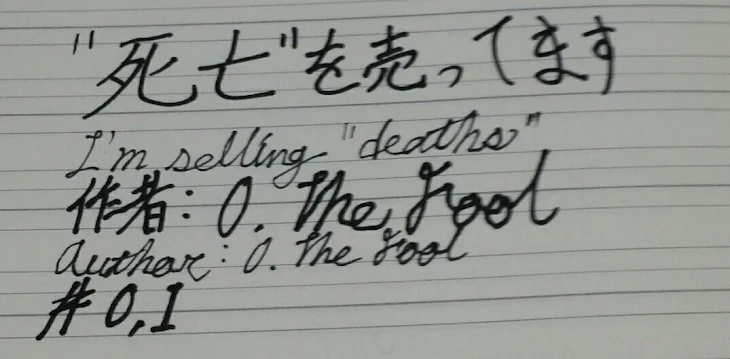 "死亡"を売ってます
I'm selling "deaths"
作者: 0. The fool
author: 0. The fool
#0,I